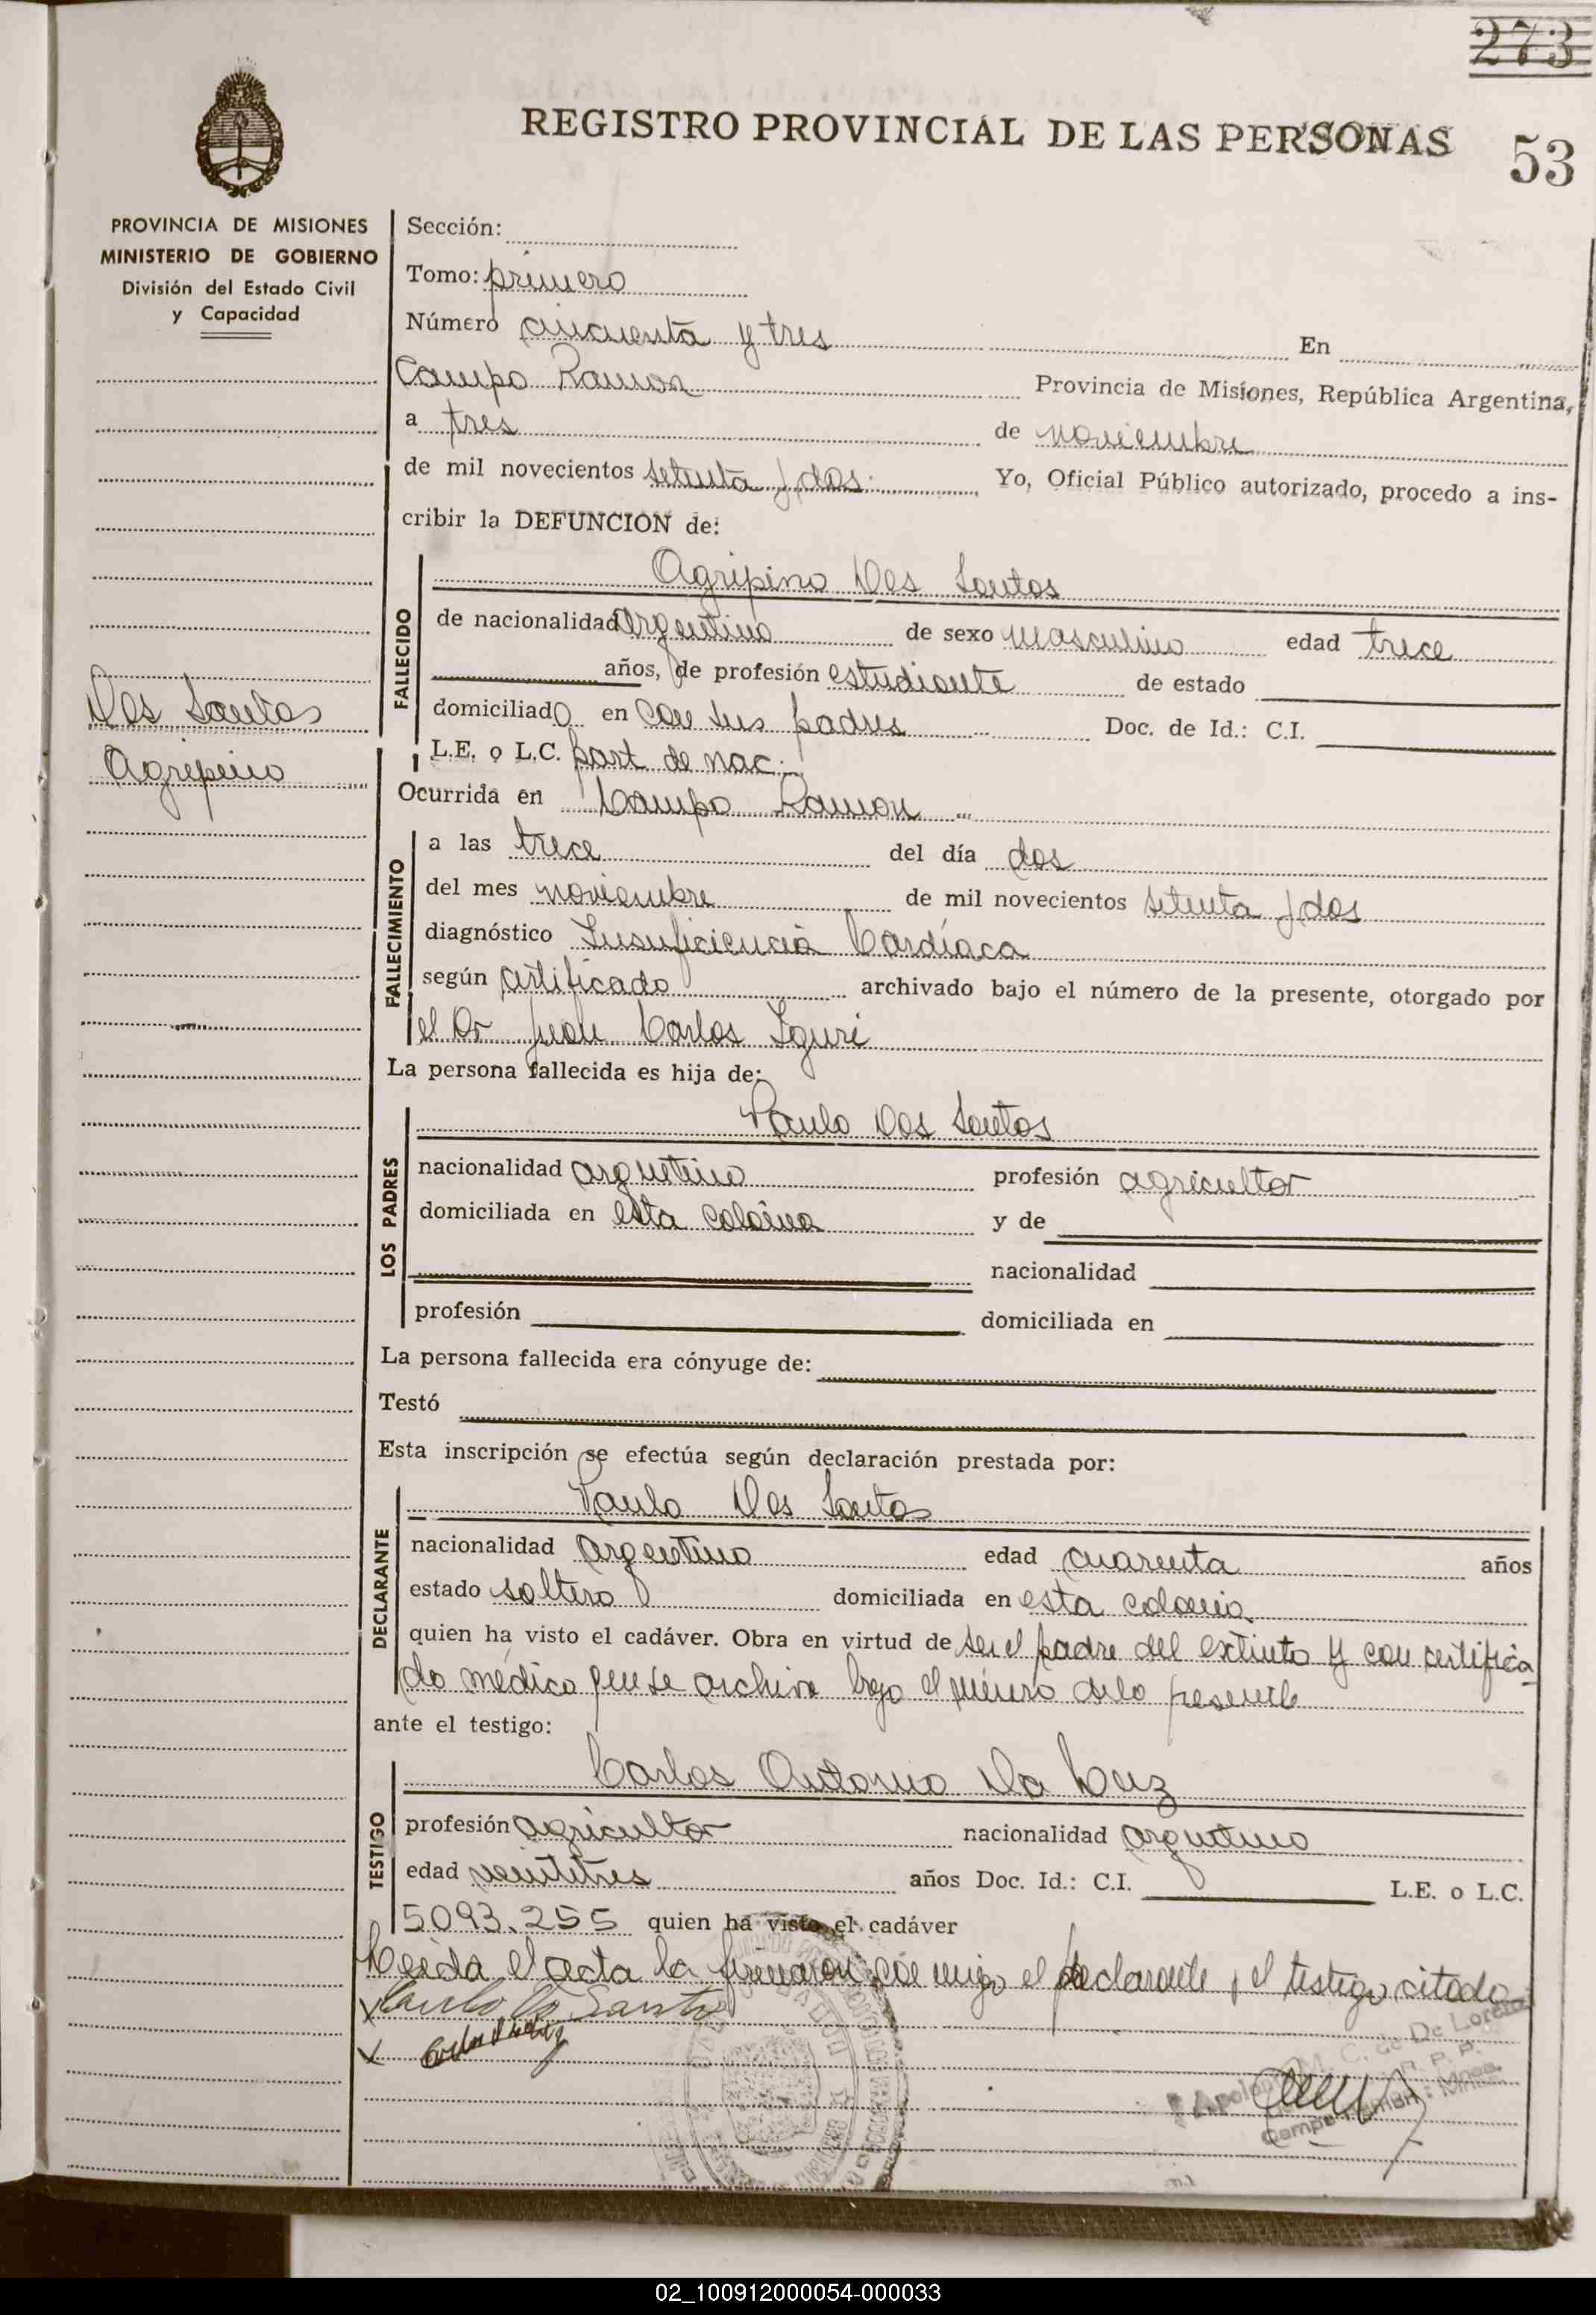 273
REGISTRO PROVINCIAL DE LAS PERSONAS 53
PROVINCIA DE MISIONES
MINISTERIO DE GOBIERNO
División del Estado Civil
y Capacidad
Sección:
Tomo: primero
Número cincuenta y tres En
Campo Ramon Provincia de Misiones, República Argentina,
a tres de noviembre
de mil novecientos setenta y dos. Yo, Oficial Público autorizado, procedo a ins-
cribir la DEFUNCION de:
Dos Santos
Agripino
FALLECIDO
Agripino Dos Santos
de nacionalidad Argentino de sexo masculino edad trece
años, de profesión estudiante de estado
domiciliado en con sus padres Doc. de Id.: C.I.
L.E. o L.C. part. de nac.
Ocurrida en Campo Ramon
FALLECIMIENTO
a las trece del día dos
del mes noviembre de mil novecientos setenta y dos
diagnóstico Insuficiencia Cardíaca
según certificado archivado bajo el número de la presente, otorgado por
el Dr Juan Carlos Iguri
La persona fallecida es hija de:
LOS PADRES
Paulo Dos Santos
nacionalidad argentino profesión agricultor
domiciliada en esta colonia y de
nacionalidad
profesión domiciliada en
La persona fallecida era cónyuge de:
Testó
Esta inscripción se efectúa según declaración prestada por:
DECLARANTE
Paulo Dos Santos
nacionalidad Argentino edad cuarenta años
estado soltero domiciliada en esta colonia
quien ha visto el cadáver. Obra en virtud de ser el padre del extinto y con certifica
do médico que se archiva bajo el número de la presente
ante el testigo:
TESTIGO
Carlos Antonio Da Luz
profesión agricultor nacionalidad argentino
edad veintitres años Doc. Id.: C.I. L.E. o L.C.
5093.255 quien ha visto el cadáver
Leida el acta la firmaron conmigo el declarante y el testigo citado
Paulo Do Santo
M. C. de De Loreto
Campo Ramon - Mnes.
02_100912000054-000033